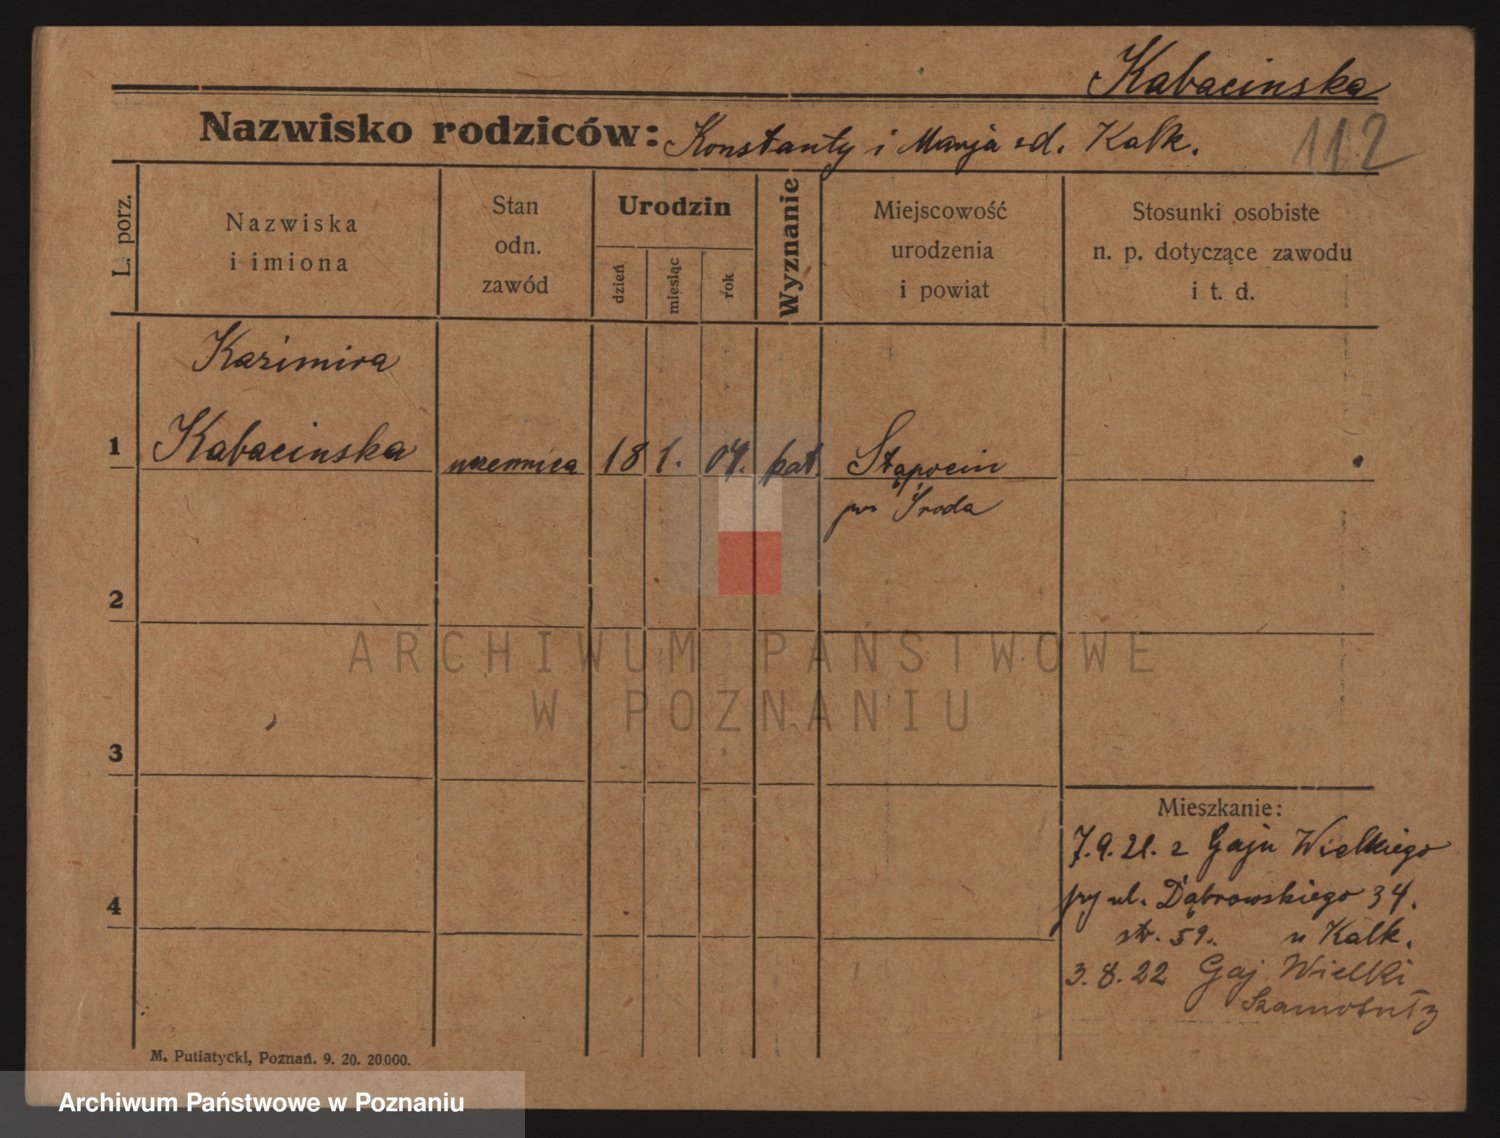 Kabacinska
Nazwisko rodziców: Konstanty i Marja Kalk.
112
L. porz.
Nazwiska
i imiona
Stan
odn.
zawód
Urodzin
dzień
miesiąc
rok
Wyznanie
Miejscowość
urodzenia
i powiat
Stosunki osobiste
n. p. dotyczące zawodu
i t. d.
Kazimira
1 Kabacinska uczennica 18 1. kat.
pow Środa
2
3
4
Mieszkanie:
7.9.21. z Gaju Wielkiego
przy ul. Dąbrowskiego 34.
str. 59. u Kalk.
3.8.22 Gaj Wielki
Szamotuły
M. Putiatycki, Poznań. 9. 20. 20000.
ARCHIWUM PAŃSTWOWE
W POZNANIU
Archiwum Państwowe w Poznaniu